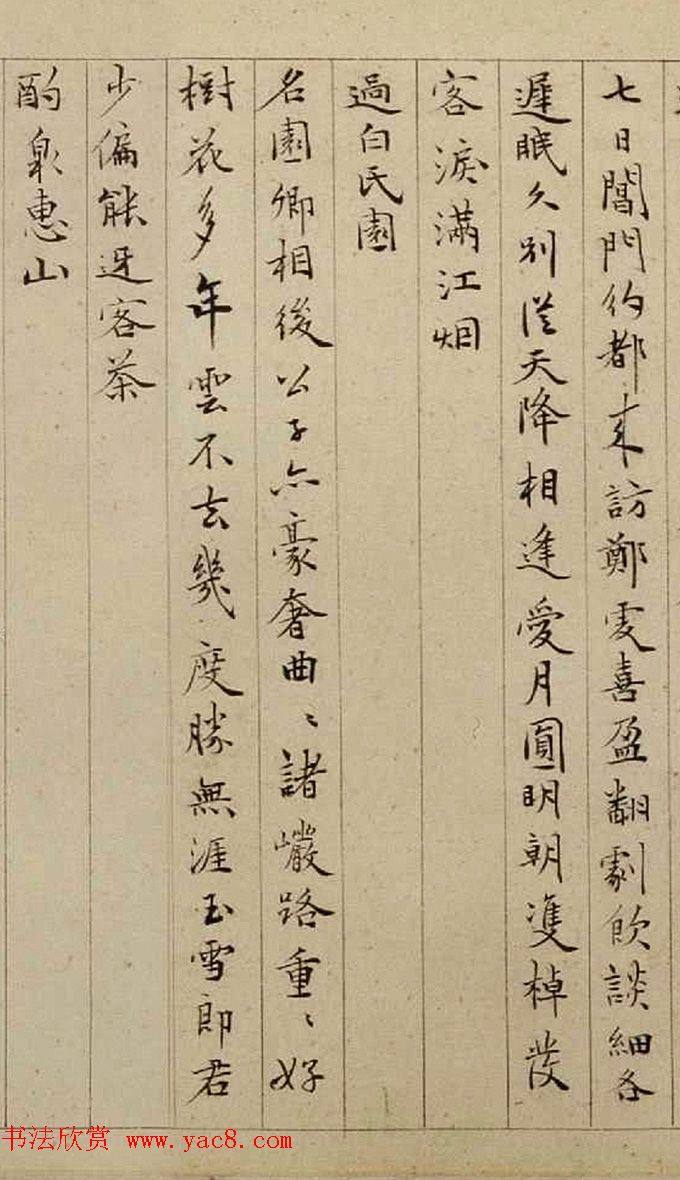 七日閶門約都来訪鄭虔喜盈翻劇飲談細各
遲眠久别從天降相逢愛月圓明朝雙棹發
客淚滿江烟
過白氏園
名園卿相後公子亦豪奢曲〻諸巖路重〻好
樹花多年雲不去幾度勝無涯玉雪郎君
少偏能迓客茶
酌泉惠山
书法欣赏 www.yac8.com